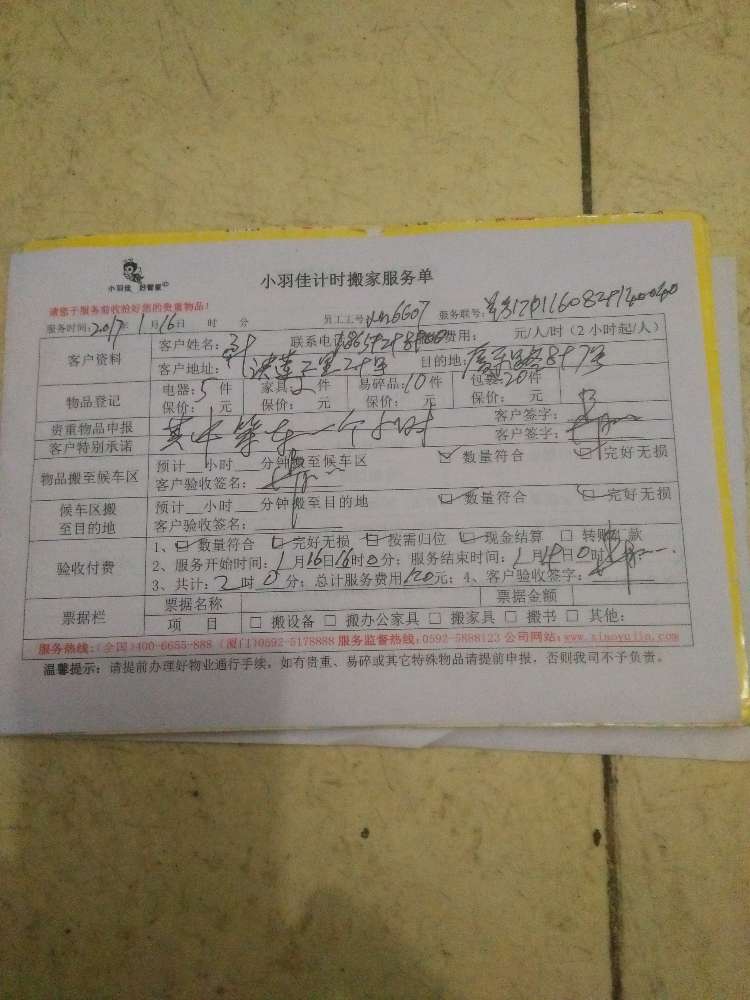 小羽佳 好管家
小羽佳计时搬家服务单
请您于服务前收拾好您的贵重物品!
服务时间:2017年1月16日 时 分 员工工号 服务联号:
客户资料 客户姓名: 联系电 费用: 元/人/时(2小时起/人)
客户地址: 目的地:
物品登记 电器:5件 家具 件 易碎品:10件 包裹:20件
保价: 元 保价: 元 保价: 元 保价: 元
贵重物品申报 其中等车一个小时 客户签字:
客户特别承诺 客户签字:
物品搬至候车区 预计__小时__分钟搬至候车区 数量符合 完好无损
客户验收签名:
候车区搬至目的地 预计__小时__分钟搬至目的地 数量符合 完好无损
客户验收签名:
验收付费 1、数量符合 完好无损 按需归位 现金结算 转账 款
2、服务开始时间:1月16日16时0分;服务结束时间:1月 日0时
3、共计:2时0分;总计服务费用120元;4、客户验收签字:
票据栏 票据名称 票据金额
项 目 搬设备 搬办公家具 搬家具 搬书 其他:
服务热线:(全国)400-6655-888 (厦门)0592-5178888 服务监督热线:0592-5888123 公司网站:www.xiaoyujia.com
温馨提示:请提前办理好物业通行手续,如有贵重、易碎或其它特殊物品请提前申报,否则我司不予负责。